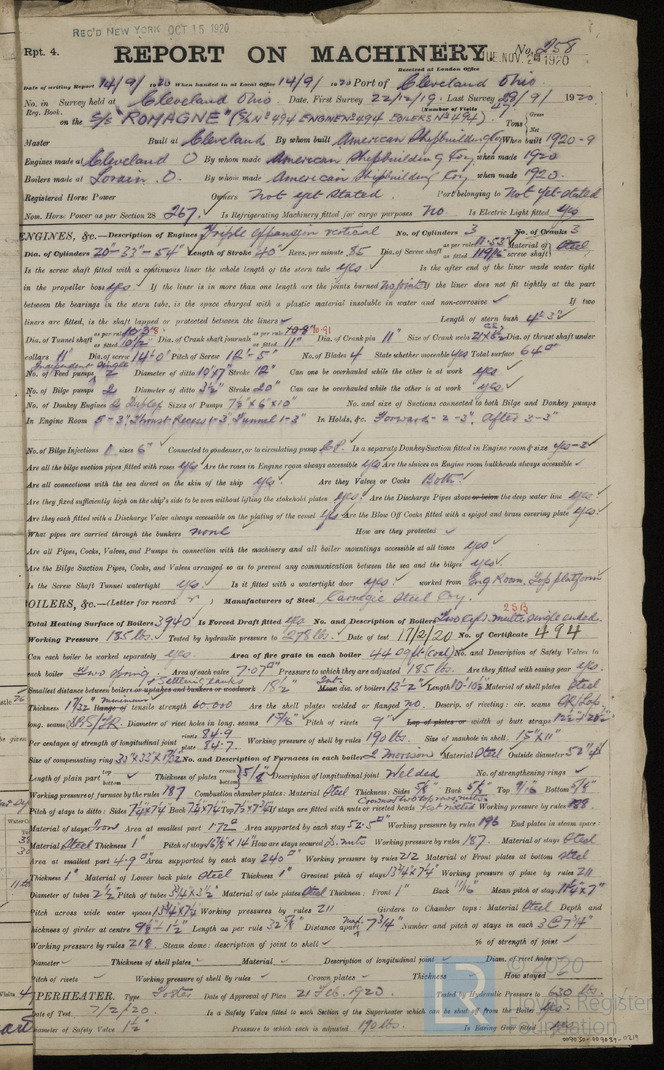 REC'D NEW YORK OCT 15 1920
Rpt. 4.
REPORT ON MACHINERY.
No. 258
TUE NOV. 1920
Received at London Office
Date of writing Report 14/9/1920 When handed in at Local Office 14/9/1920 Port of Cleveland Ohio.
No. in Survey held at Cleveland Ohio. Date, First Survey 22/12/19. Last Survey /9/ 1920
Reg. Book. (Number of Visits
on the S/S "ROMAGNE" (S/LNº 494 ENGINENº 494 BOILERS Nº 494) Tons { Gross Net
Master Built at Cleveland By whom built American Shipbuilding Coy When built 1920-9
Engines made at Cleveland O By whom made American Shipbuilding Coy when made 1920
Boilers made at Lorain. O. By whom made American Shipbuilding Coy when made 1920.
Registered Horse Power Owners Not yet stated. Port belonging to Not yet stated
Nom. Horse Power as per Section 28 267. Is Refrigerating Machinery fitted for cargo purposes NO Is Electric Light fitted yes
ENGINES, &c.—Description of Engines Triple expansion vertical No. of Cylinders 3 No. of Cranks 3
Dia. of Cylinders 20"-33"-54" Length of Stroke 40" Revs. per minute 85 Dia. of Screw shaft as per rule 11.53" as fitted 11 9/16" Material of screw shaft Steel
Is the screw shaft fitted with a continuous liner the whole length of the stern tube yes Is the after end of the liner made water tight
in the propeller boss yes If the liner is in more than one length are the joints burned no joint If the liner does not fit tightly at the part
between the bearings in the stern tube, is the space charged with a plastic material insoluble in water and non-corrosive If two
liners are fitted, is the shaft lapped or protected between the liners Length of stern bush 4'-3"
Dia. of Tunnel shaft as per rule as fitted 10 1/2" Dia. of Crank shaft journals as per rule 10.91 as fitted 11" Dia. of Crank pin 11" Size of Crank webs Dia. of thrust shaft under
collars 11" Dia. of screw 14'-0" Pitch of Screw 12'-5" No. of Blades 4 State whether moveable Total surface 64
No. of Feed pumps 2 Diameter of ditto 10"x7" Stroke 12" Can one be overhauled while the other is at work yes
No. of Bilge pumps 2 Diameter of ditto 3 1/2" Stroke 20" Can one be overhauled while the other is at work yes
No. of Donkey Engines 2 Duplex Sizes of Pumps 7 1/2"x6"x10" No. and size of Suctions connected to both Bilge and Donkey pumps
In Engine Room 5-3" Thrust Recess 1-3" Tunnel 1-3" In Holds, &c. Forward-2-3". After 3-3"
No. of Bilge Injections 1 sizes 6" Connected to condenser, or to circulating pump C.P. Is a separate Donkey Suction fitted in Engine room & size yes-3
Are all the bilge suction pipes fitted with roses yes Are the roses in Engine room always accessible yes Are the sluices on Engine room bulkheads always accessible
Are all connections with the sea direct on the skin of the ship yes Are they Valves or Cocks Both.
Are they fixed sufficiently high on the ship's side to be seen without lifting the stokehold plates yes. Are the Discharge Pipes above or below the deep water line yes
Are they each fitted with a Discharge Valve always accessible on the plating of the vessel yes Are the Blow Off Cocks fitted with a spigot and brass covering plate yes.
What pipes are carried through the bunkers none How are they protected
Are all Pipes, Cocks, Valves, and Pumps in connection with the machinery and all boiler mountings accessible at all times yes
Are the Bilge Suction Pipes, Cocks, and Valves arranged so as to prevent any communication between the sea and the bilges yes
Is the Screw Shaft Tunnel watertight yes. Is it fitted with a watertight door yes worked from Eng Room, Top platform
BOILERS, &c.—(Letter for record r ) Manufacturers of Steel Carnegie Steel Coy. 2SB
Total Heating Surface of Boilers 3940 Is Forced Draft fitted yes No. and Description of Boilers Two Cyl. multi single ended.
Working Pressure 185 lbs. Tested by hydraulic pressure to 278 lbs. Date of test 17/2/20 No. of Certificate 494
Can each boiler be worked separately yes. Area of fire grate in each boiler 44 (Coal) No. and Description of Safety Valves to
each boiler Two Spring Area of each valve 7.07 Pressure to which they are adjusted 185 lbs. Are they fitted with easing gear yes.
Smallest distance between boilers or uptakes and bunkers or woodwork 18 1/2" Mean dia. of boilers 13'-2" Length Material of shell plates Steel
Thickness 1 7/32 Range of tensile strength 60.000 Are the shell plates welded or flanged no. Descrip. of riveting: cir. seams
long. seams Diameter of rivet holes in long. seams Pitch of rivets 9" Lap of plates or width of butt straps
Per centages of strength of longitudinal joint rivets 84.9 plate 84.7 Working pressure of shell by rules 190 lbs. Size of manhole in shell 15"x11"
Size of compensating ring No. and Description of Furnaces in each boiler 2 Morrison Material Steel Outside diameter
Length of plain part top bottom Thickness of plates crown bottom 5/8" Description of longitudinal joint Welded No. of strengthening rings
Working pressure of furnace by the rules 187 Combustion chamber plates: Material Steel Thickness: Sides 5/8" Back 5/8" Top 9/16" Bottom
Pitch of stays to ditto: Sides Back Top If stays are fitted with nuts or riveted heads Working pressure by rules 188
Material of stays Iron Area at smallest part 1.72 Area supported by each stay 52.5 Working pressure by rules 196 End plates in steam space:
Material Steel Thickness 1" Pitch of stays How are stays secured D. nuts Working pressure by rules 187. Material of stays Steel
Area at smallest part 4.9 Area supported by each stay 240 Working pressure by rules 212 Material of Front plates at bottom Steel
Thickness 1" Material of Lower back plate Steel Thickness 1" Greatest pitch of stays Working pressure of plate by rules 211
Diameter of tubes 2 1/2" Pitch of tubes 3 3/4"x3 1/2" Material of tube plates Steel Thickness: Front 1" Back 11/16" Mean pitch of stays
Pitch across wide water spaces Working pressures by rules 211 Girders to Chamber tops: Material Steel Depth and
thickness of girder at centre Length as per rule 32 Distance apart 7 3/4" Number and pitch of stays in each 3 @ 7 1/4"
Working pressure by rules 218. Steam dome: description of joint to shell % of strength of joint
Diameter Thickness of shell plates Material Description of longitudinal joint Diam. of rivet holes
Pitch of rivets Working pressure of shell by rules Crown plates Thickness How stayed
SUPERHEATER. Type Foster Date of Approval of Plan 21 Feb. 1920. Tested by Hydraulic Pressure to 630 lbs.
Date of Test 7/2/20. Is a Safety Valve fitted to each Section of the Superheater which can be shut off from the Boiler yes.
Diameter of Safety Valve 1 1/2" Pressure to which each is adjusted 190 lbs. Is Easing Gear fitted yes.
© 2020
Lloyd's Register
Foundation
009030-009039-0219